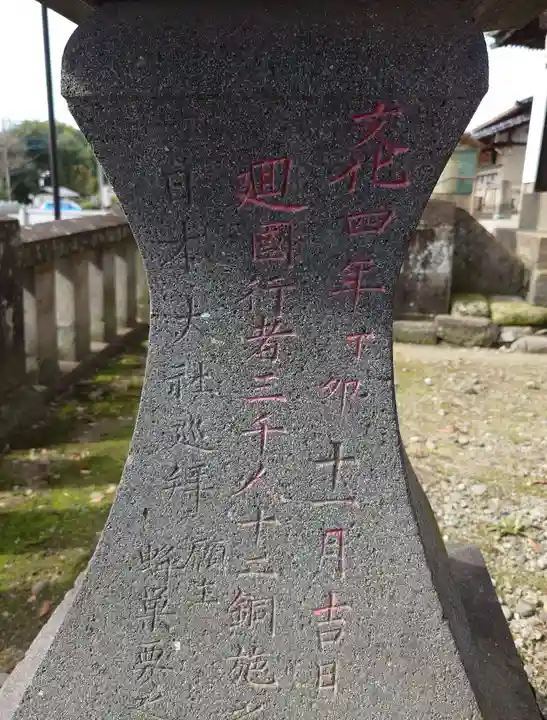 文化四年丁卯 十一月吉日
廻國行者三千人十二銅施
日本大社巡拝 願主
蜂巣栗